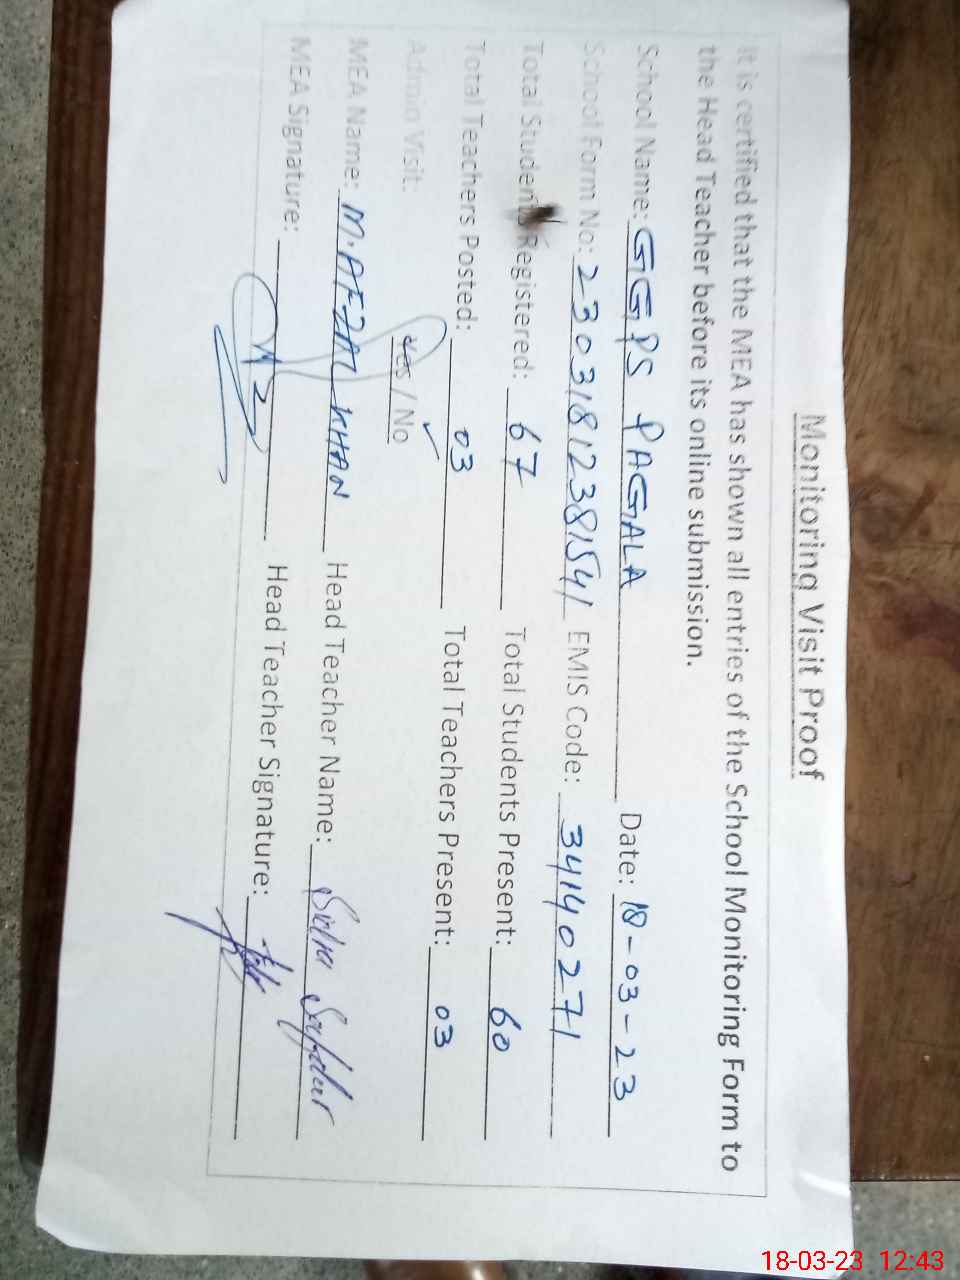 Monitoring Visit Proof
It is certified that the MEA has shown all entries of the School Monitoring Form to
the Head Teacher before its online submission.
School Name: GGPS PAGALA Date: 18-03-23
School Form No: 23031812381541 EMIS Code: 34140271
Total Students Registered: 67 Total Students Present: 60
Total Teachers Posted: 03 Total Teachers Present: 03
Admin Visit: Yes / No ✓
MEA Name: M.AFZAL KHAN Head Teacher Name: Safdar
MEA Signature: Head Teacher Signature:
18-03-23 12:43